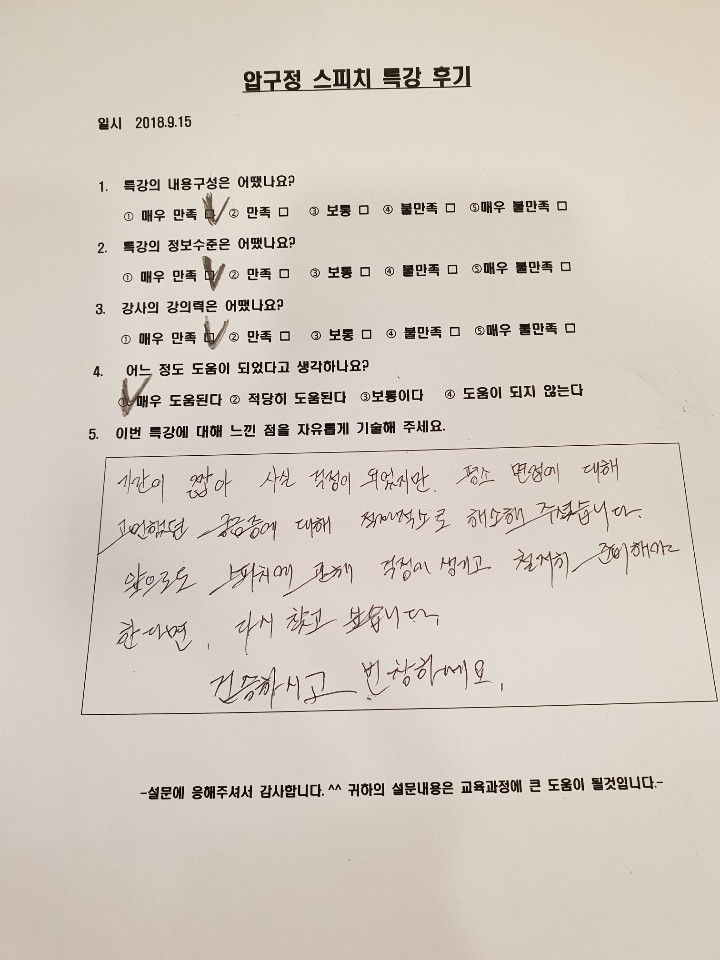 압구정 스피치 특강 후기
일시 2018.9.15
1. 특강의 내용구성은 어땠나요?
① 매우 만족 □ ② 만족 □ ③ 보통 □ ④ 불만족 □ ⑤매우 불만족 □
2. 특강의 정보수준은 어땠나요?
① 매우 만족 □ ② 만족 □ ③ 보통 □ ④ 불만족 □ ⑤매우 불만족 □
3. 강사의 강의력은 어땠나요?
① 매우 만족 □ ② 만족 □ ③ 보통 □ ④ 불만족 □ ⑤매우 불만족 □
4. 어느 정도 도움이 되었다고 생각하나요?
① 매우 도움된다 ② 적당히 도움된다 ③보통이다 ④ 도움이 되지 않는다
5. 이번 특강에 대해 느낀 점을 자유롭게 기술해 주세요.
시간이 짧아 사실 걱정이 되었지만, 평소 면접에 대해
고민했던 궁금증에 대해 적재적소로 해소해 주셨습니다.
앞으로도 스피치에 관해 걱정이 생기고 철저히 준비해야
한다면, 다시 찾고 싶습니다.
건승하시고 번창하세요.
-설문에 응해주셔서 감사합니다.^^ 귀하의 설문내용은 교육과정에 큰 도움이 될것입니다.-